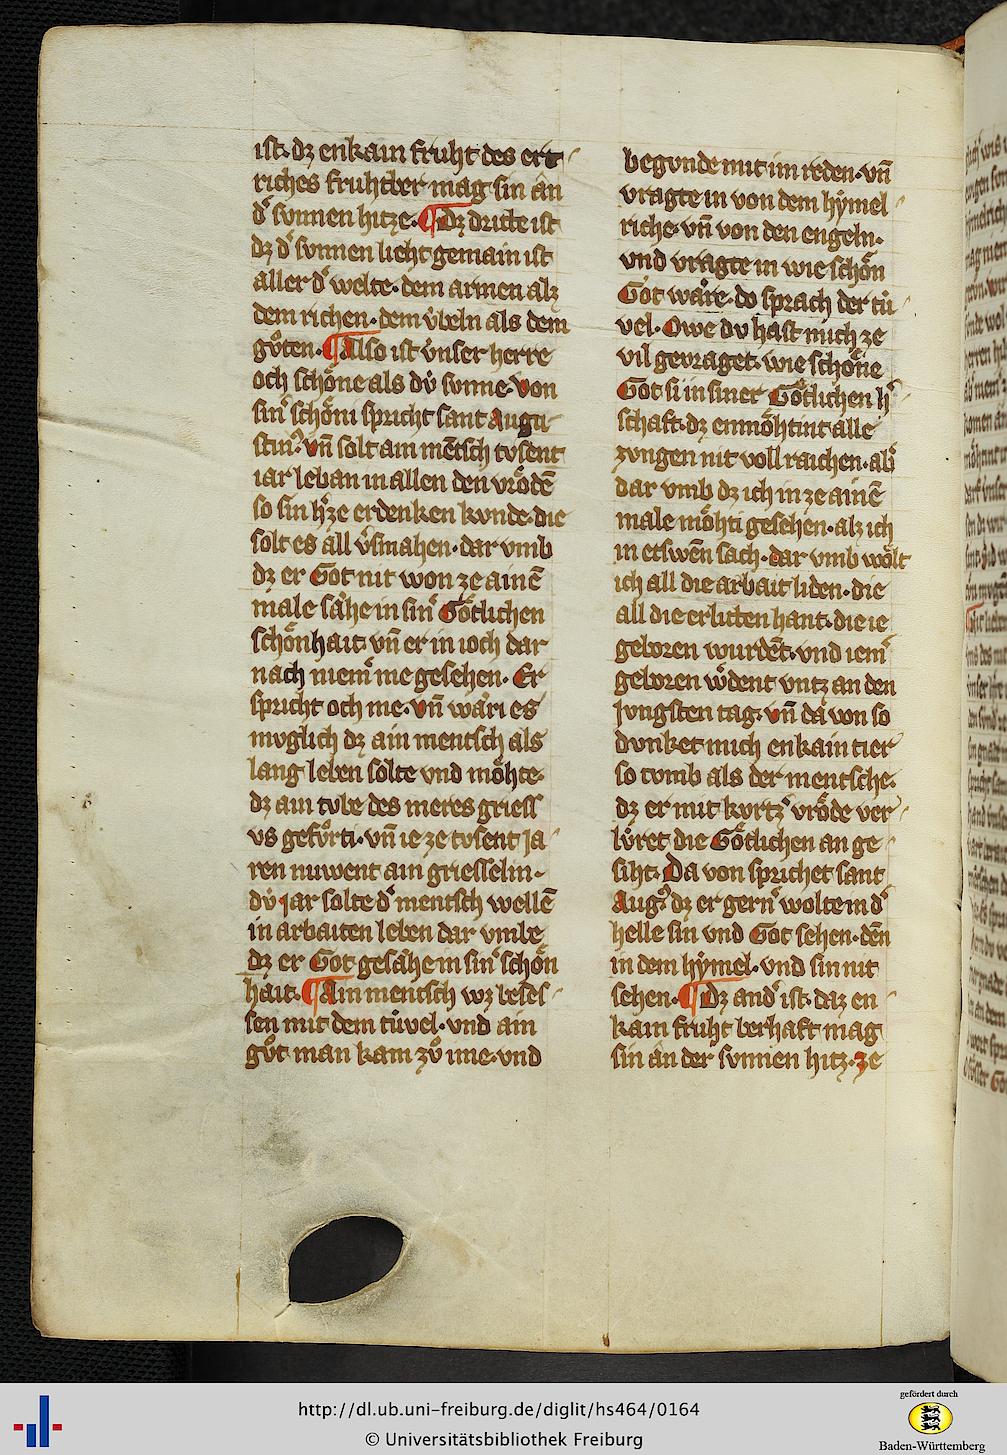 ist. dz enkain fruht des ert
riches fruhtber mag sin ân
d͛ sunnen hitze. ¶ dz dritte ist
dz d͛ sunnen lieht gemain ist
aller d͛ welte. dem armen alz
dem richen. dem v́beln als dem
gůten. ¶ Also ist v́nser herre
och schoͤne als dv́ sunne. von
sin͛ schoͤni spricht sant Augu
stin᷒. vn̄ solt ain mētsch tvsent
iar leban in allen den vroͤdē
so sin h͛ze erdenken kvnde. die
solt es all v͛smahen. dar vmb
dz er Got nit won ze ainē
male saͤhe in sin͛ Goͤtlichen
schoͤnhait. vn̄ er in ioch dar
nach niem͛ me gesehen. Er
spricht och me. vn̄ waͤri es
mvglich dz ain mentsch als
lang leben solte vnd moͤhte.
dz ain tvbe des meres griess
vs gefuͤrti. vn̄ ie ze tvsent Ja
ren nuwent ain griesselin.
dv́ jar solte d͛ mentsch wellē
in arbaiten leben dar vmbe
dz er Got gesaͤhe in sin͛ schoͤn
hait. ¶ Ain mentsch wz beses
sen mit dem túvel. vnd ain
gůt man kam zů ime. vnd
begvnde mit im reden. vn̄
vragte in von dem hẏmel
riche. vn̄ von den engeln.
vnd vragte in wie schoͤn
Got waͤre. do sprach der tú
vel. Owe dv hast mich ze
vil gevraget. wie schoͤne
Got si in siner Goͤtlichen h͛
schaft. dz enmoͤhtint alle
zvngen nit voll raichen. ab͛
dar vmb dz ich in ze ainē
male moͤhti gesehen. alz ich
in etswēn sach. dar vmb woͤlt
ich all die arbait liden. die
all die erlitten hant. die ie
geboren wurdēt. vnd iem͛
geboren w͛dent vntz an den
Jvngsten tag. vn̄ da von so
dvnket mich enkain tier
so tvmb als der mentsche.
dz er mit kvrtz͛ vroͤde ver
lv́ret die Goͤtlichen an ge
siht. Da von sprichet sant
Aug᷒. dz er gern͛ wolte in d͛
helle sin vnd Got sehen. dēn
in dem hẏmel. vnd sin nit
sehen. ¶ Dz and͛ ist. daz en
kain fruht berhaft mag
sin ân der svnnen hitz. ze
http://dl.ub.uni-freiburg.de/diglit/hs464/0164
© Universitätsbibliothek Freiburg
gefördert durch
Baden-Württemberg